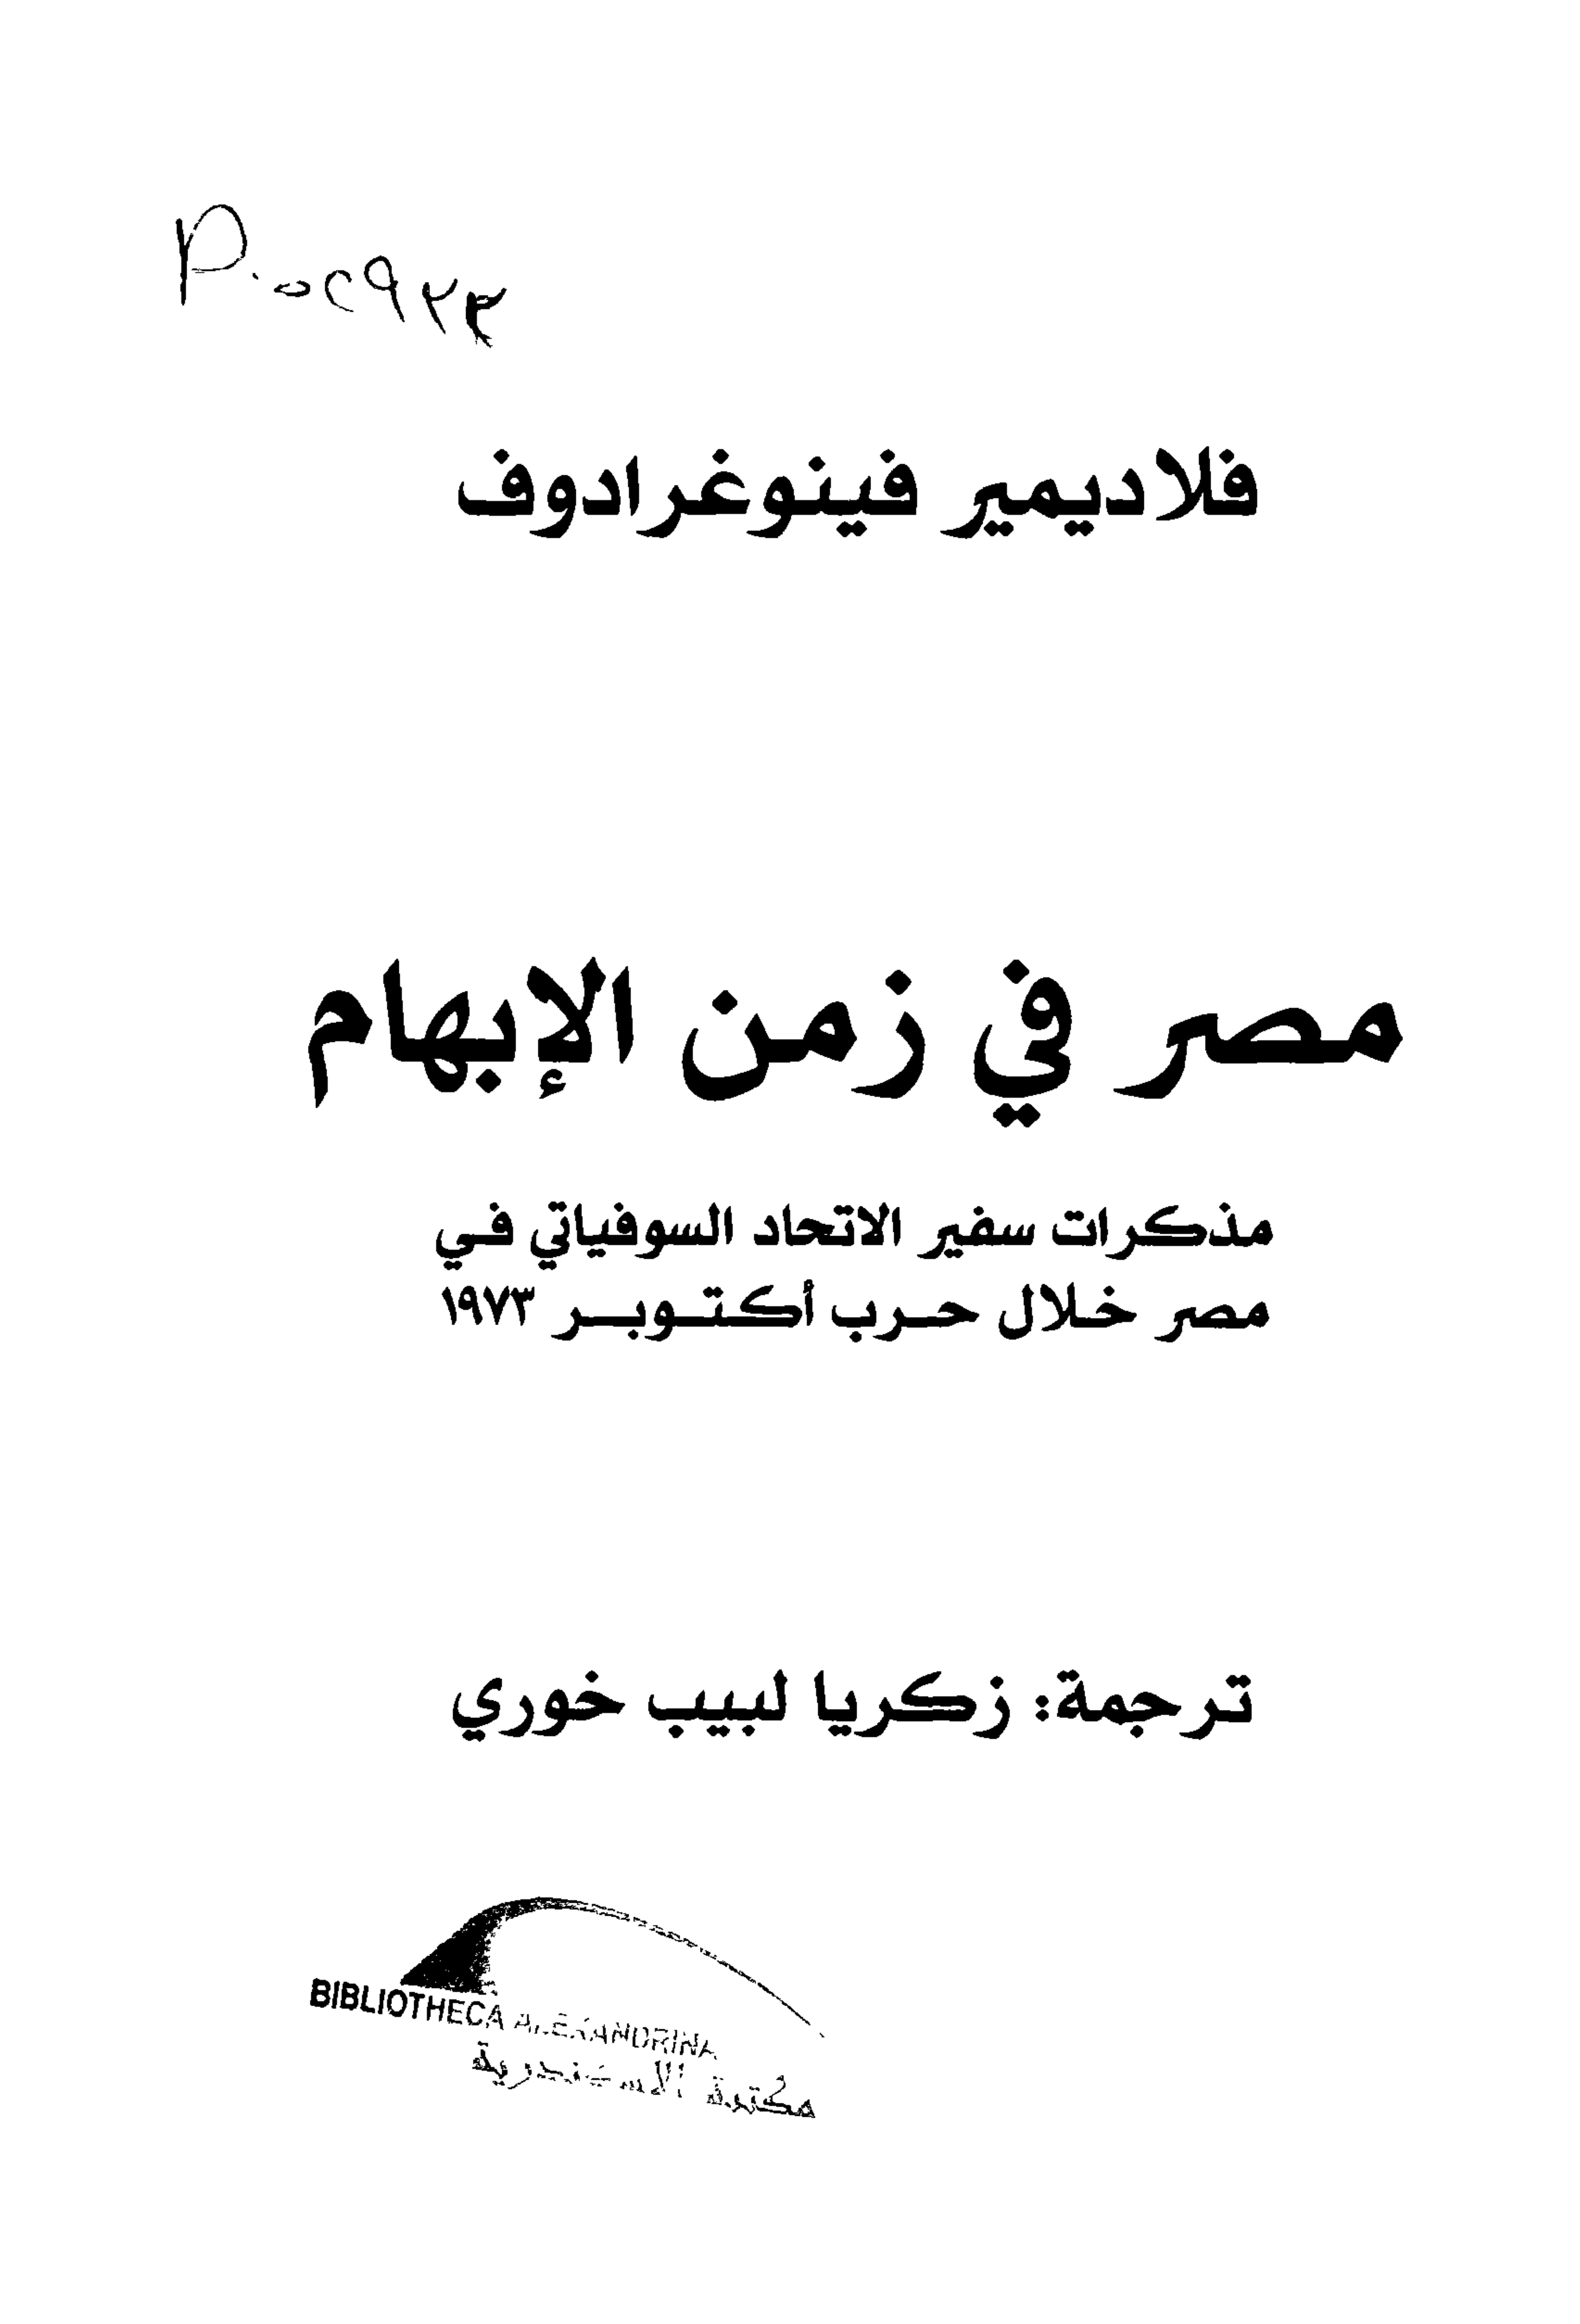 فلاديمير فينوغرادوف
مصر في زمن الإبهام
مذكرات سفير الاتحاد السوفياتي في
مصر خلال حرب أكتوبر ١٩٧٣
ترجمة: زكريا لبيب خوري
BIBLIOTHECA ALEXANDRINA
مكتبة الاسكندرية